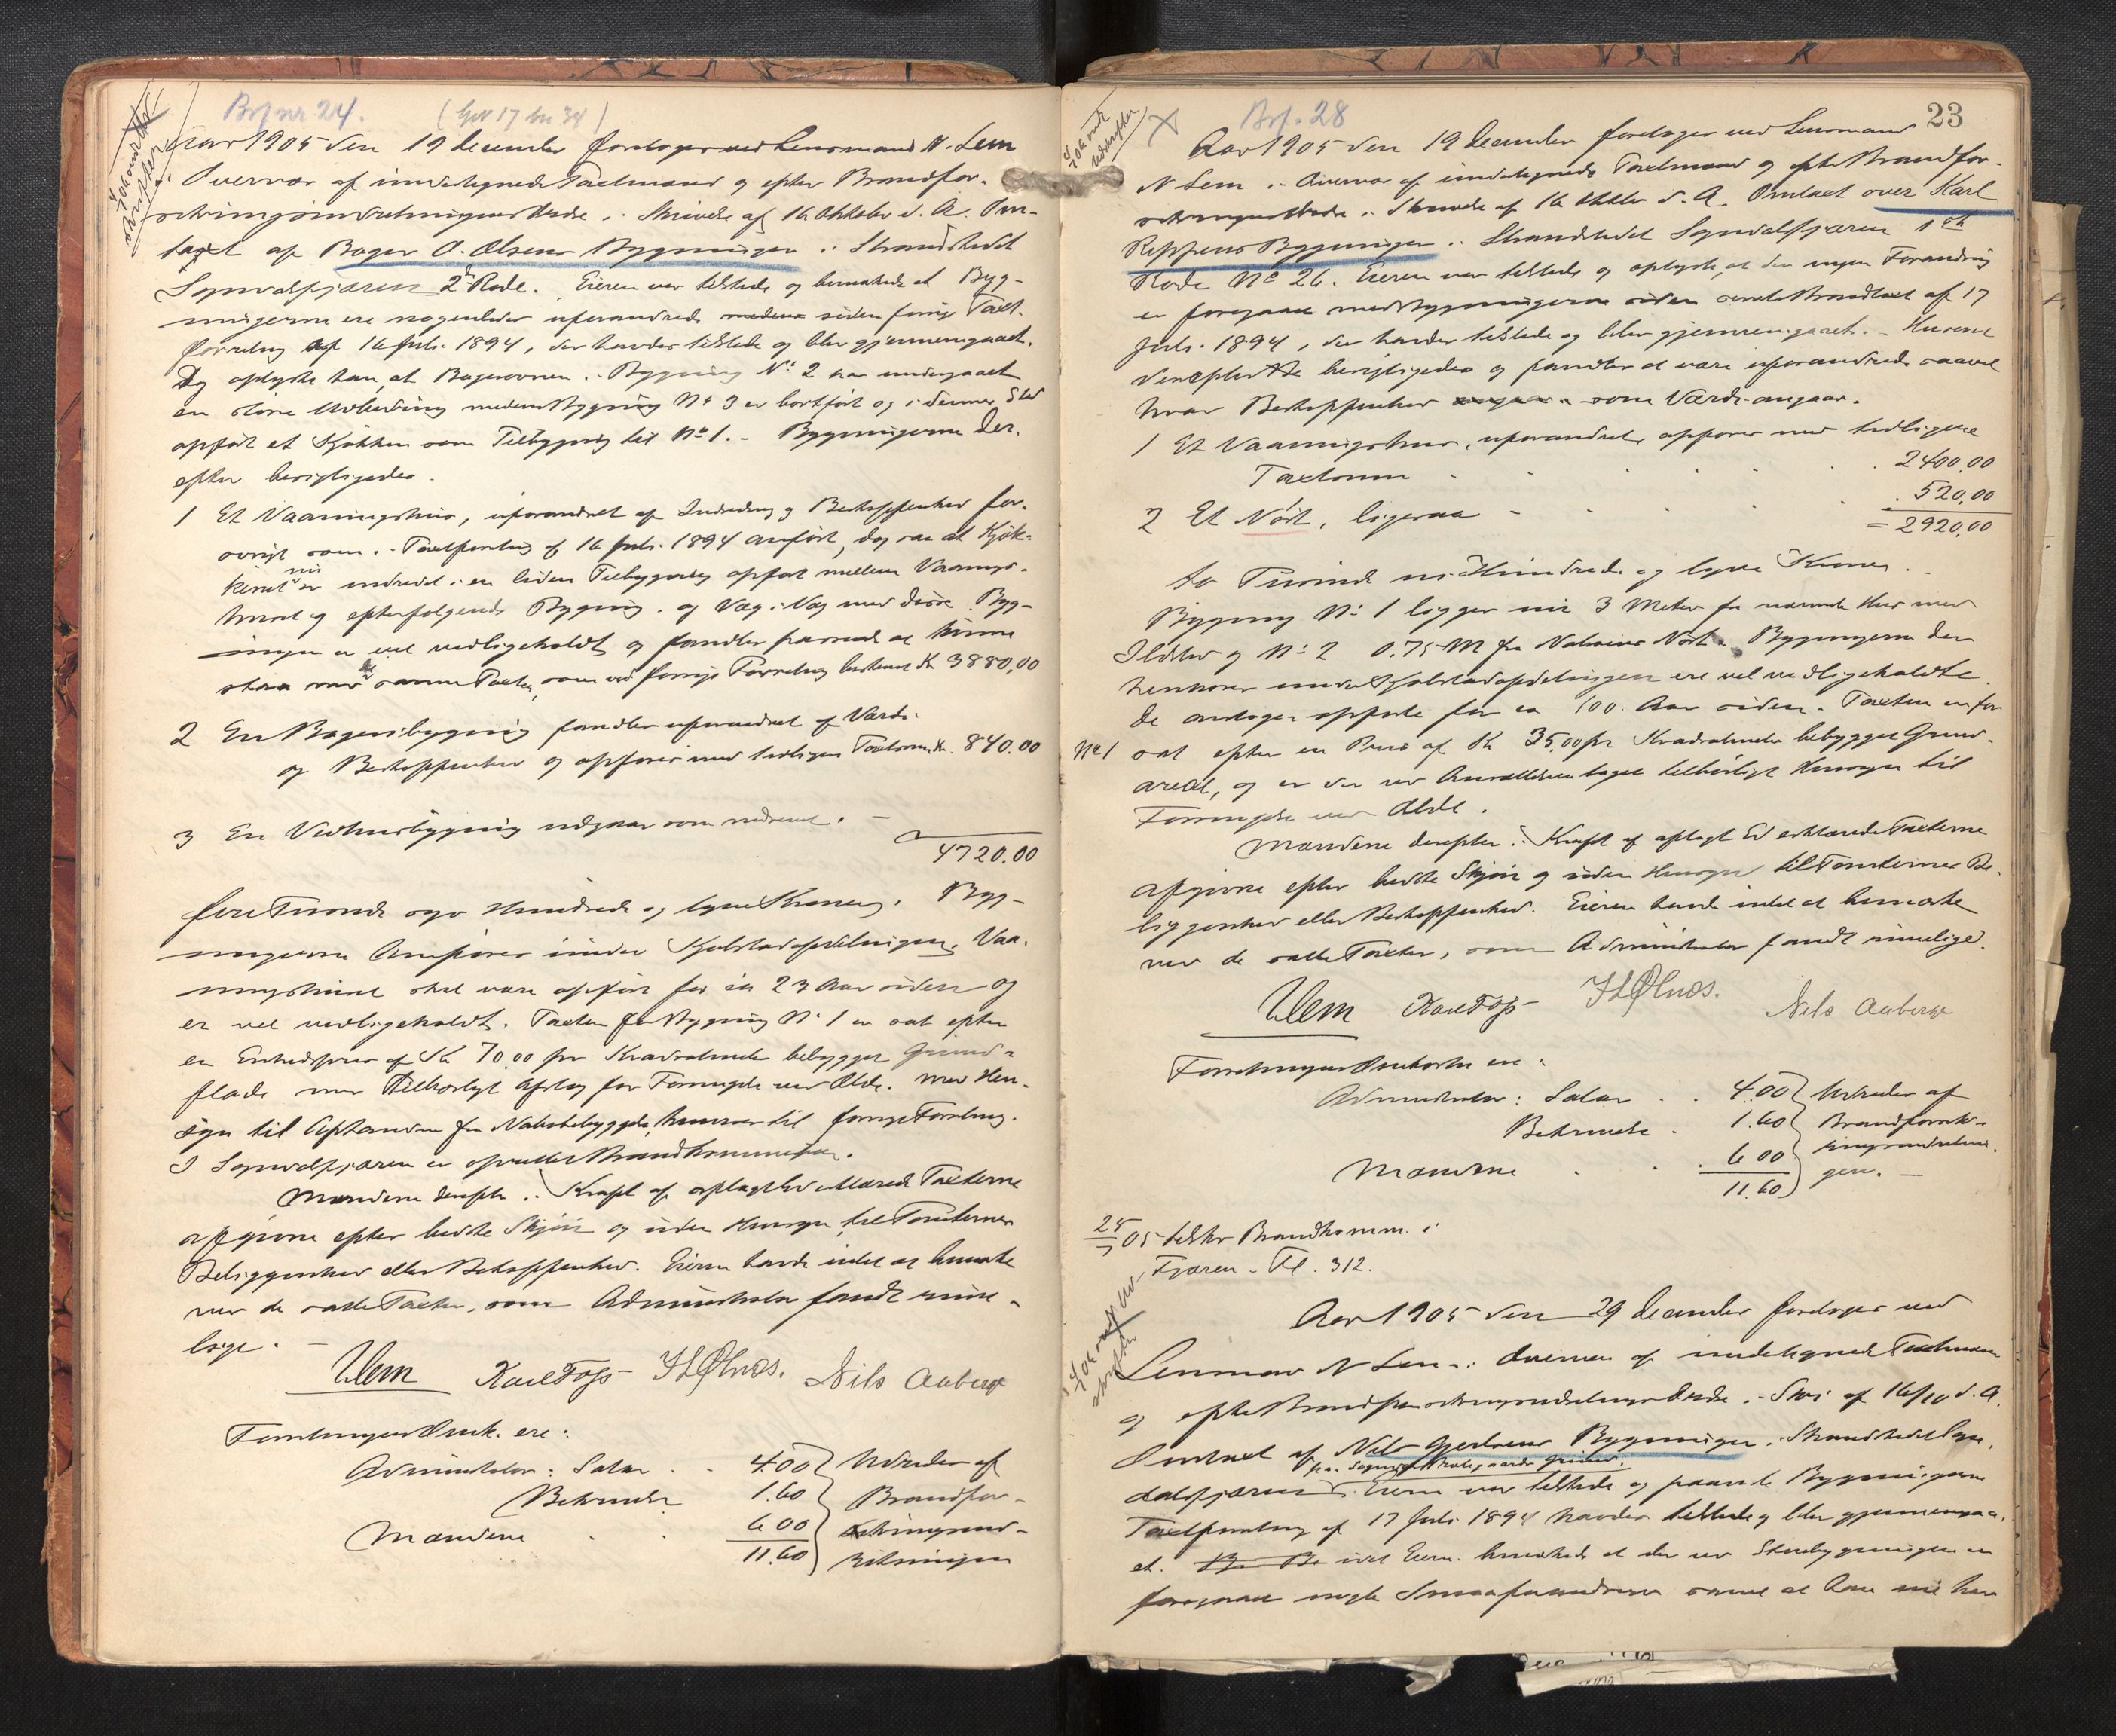 Brf nr 24. (Gr 17 br 34)
Aar 1905 den 19 December foretoges ved Lensmand N. Lem
i Overvær af undertegnede Taxtmænd og efter Brandfor-
sikringsindretningens Bestyr. Skrivelse af 16 Oktober d. A. Om-
taxt af Bager O. Olsens Bygninger i Strandstedet
Sogndalsfjæren 2den Rode. Eieren var tilstede og bemærkede at Byg-
ningerne ere nogenledes uforandrede siden forrige Taxt-
forretning af 16 Juli 1894, der havdes tilstede og blev gjennemgaaet.
Dog oplyste han, at Bagerovnen i Bygning No 2 har undergaaet
en større Udbedring medens Bygning No 3 er bortført og i dennes Sted
opført et Kjøkken som Tilbygning til No 1. - Bygningerne der-
efter besigtigedes.
1 Et Vaaningshus, uforandret af Indredning og Beskaffenhed for-
øvrigt som i Taxtforretning af 16 Juli 1894 anført, dog saa at Kjøk-
kenet nu er indredet i en liden Tilbygning opført mellem Vaanings-
huset og efterfølgende Bygning og Væg i Væg med disse. Byg-
ningen er vel vedligeholdt og fandtes passende at kunne
staa ved samme Taxt, som ved forrige Forretning bestemt Kr 3880,00
2 En Bageribygning fandtes uforandret af Værdi
og Beskaffenhed og opføres med tidligere Taxtsum Kr. 840.00
3 En Vedhusbygning udgaar som nedrevet. -
4720.00
fire Tusinde syv Hundrede og tyve Kroner. Byg-
ningerne henføres under Kjøbstadafdelingen. Vaa-
ningshuset skal være opført for ca 23 Aar siden og
er vel vedligeholdt. Taxten for Bygning No 1 er sat efter
en Enhedspris af Kr 70.00 pr Kvadratmeter bebygget Grund-
flade med tilbørligt Afslag for Forringelse ved Ælde. Med Hen-
syn til Afstanden fra Nabobebyggelse, henvises til forrige Forretning.
I Sogndalsfjæren er oprettet Brandkommission.
Mændene derefter i Kraft af aflagt Ed erklærede Taxterne
afgivne efter bedste Skjøn og uden Hensyn til Tomternes
Beliggenhed eller Beskaffenhed. Eieren havde intet at bemærke
ved de satte Taxter, som Administrator fandt rime-
lige. -
NLem Karl Foss H Ølnæs. Nils Aaberge
Forretningens Omk. ere:
Administrator: Salær . . 4.00 Udredes af
Befordring 1.60 Brandfor-
Mændene . . 6 00 sikringsind-
11.60 retningen
23
Brf. 28
Aar 1905 den 19 December foretoges ved Lensmand
N Lem i Overvær af undertegnede Taxtmænd og efter Brandfor-
sikringens Bestyr. Skrivelse af 16 Oktober d. A. Omtaxt over Karl
Reppens Bygninger i Strandstedet Sogndalsfjæren 1ste
Rode No 26. Eieren var tilstede og oplyste, at der ingen Forandring
er foregaaet med Bygningerne siden sidste Brandtaxt af 17
Juli 1894, der havdes tilstede og blev gjennemgaaet. - Husene
derefter besigtigedes og fandtes at være uforandrede saavel
hvad Beskaffenhed som Værdi angaar.
1 Et Vaaningshus, uforandret, opføres med tidligere
Taxtsum . . . . 2400.00
2 Et Nøst, ligesaa - . . . 520,00
= 2920,00
to Tusinde ni Hundrede og tyve Kroner.
Bygning No 1 ligger nu 3 Meter fra nærmeste Hus med
Ildsted og No 2 0.75 M fra Naboens Nøst. Bygningerne der
henhører under Kjøbstadafdelingen ere vel vedligeholdte.
De antages opførte for ca 100 Aar siden. Taxten er for
No 1 sat efter en Pris af Kr 35,00 pr Kvadratmeter bebygget Grund-
areal, og er der ved Ansættelsen taget tilbørligt Hensyn til
Forringelse ved Ælde.
Mændene derefter i Kraft af aflagt Ed erklærede Taxterne
afgivne efter bedste Skjøn og uden Hensyn til Tomternes Be-
liggenhed eller Beskaffenhed. Eieren havde intet at bemærke
ved de satte Taxter, som Administrator fandt rimelige.
NLem Karl Foss H Ølnæs. Nils Aaberge
Forretningens Omkostn. ere:
Administrator: Salær . . 4.00 Udredes af
Befordring . 1.60 Brandforsik-
Mændene . . 6 00 ringsindretnin-
11.60 gen. -
Brandkomm. i
Fjæren. Fl. 312.
Aar 1905 den 29 December foretoges ved
Lensmand N Lem i Overvær af undertegnede Taxtmænd
og efter Brandforsikringsindretningens Bestyr. Skr. af 16/10 d. A.
Omtaxt af Nils Gjerløws Bygninger i Strandstedet Sogn-
paa Sogndals Prestegaards Grund.
dalsfjæren. Eieren var tilstede og paaviste Bygningerne
Taxtforretning af 17 Juli 1894 havdes tilstede og blev gjennemgaa-
et. Eieren bemærkede at der ved Storebygningen er
foregaaet nogle Smaaforandringer samt at han nu har